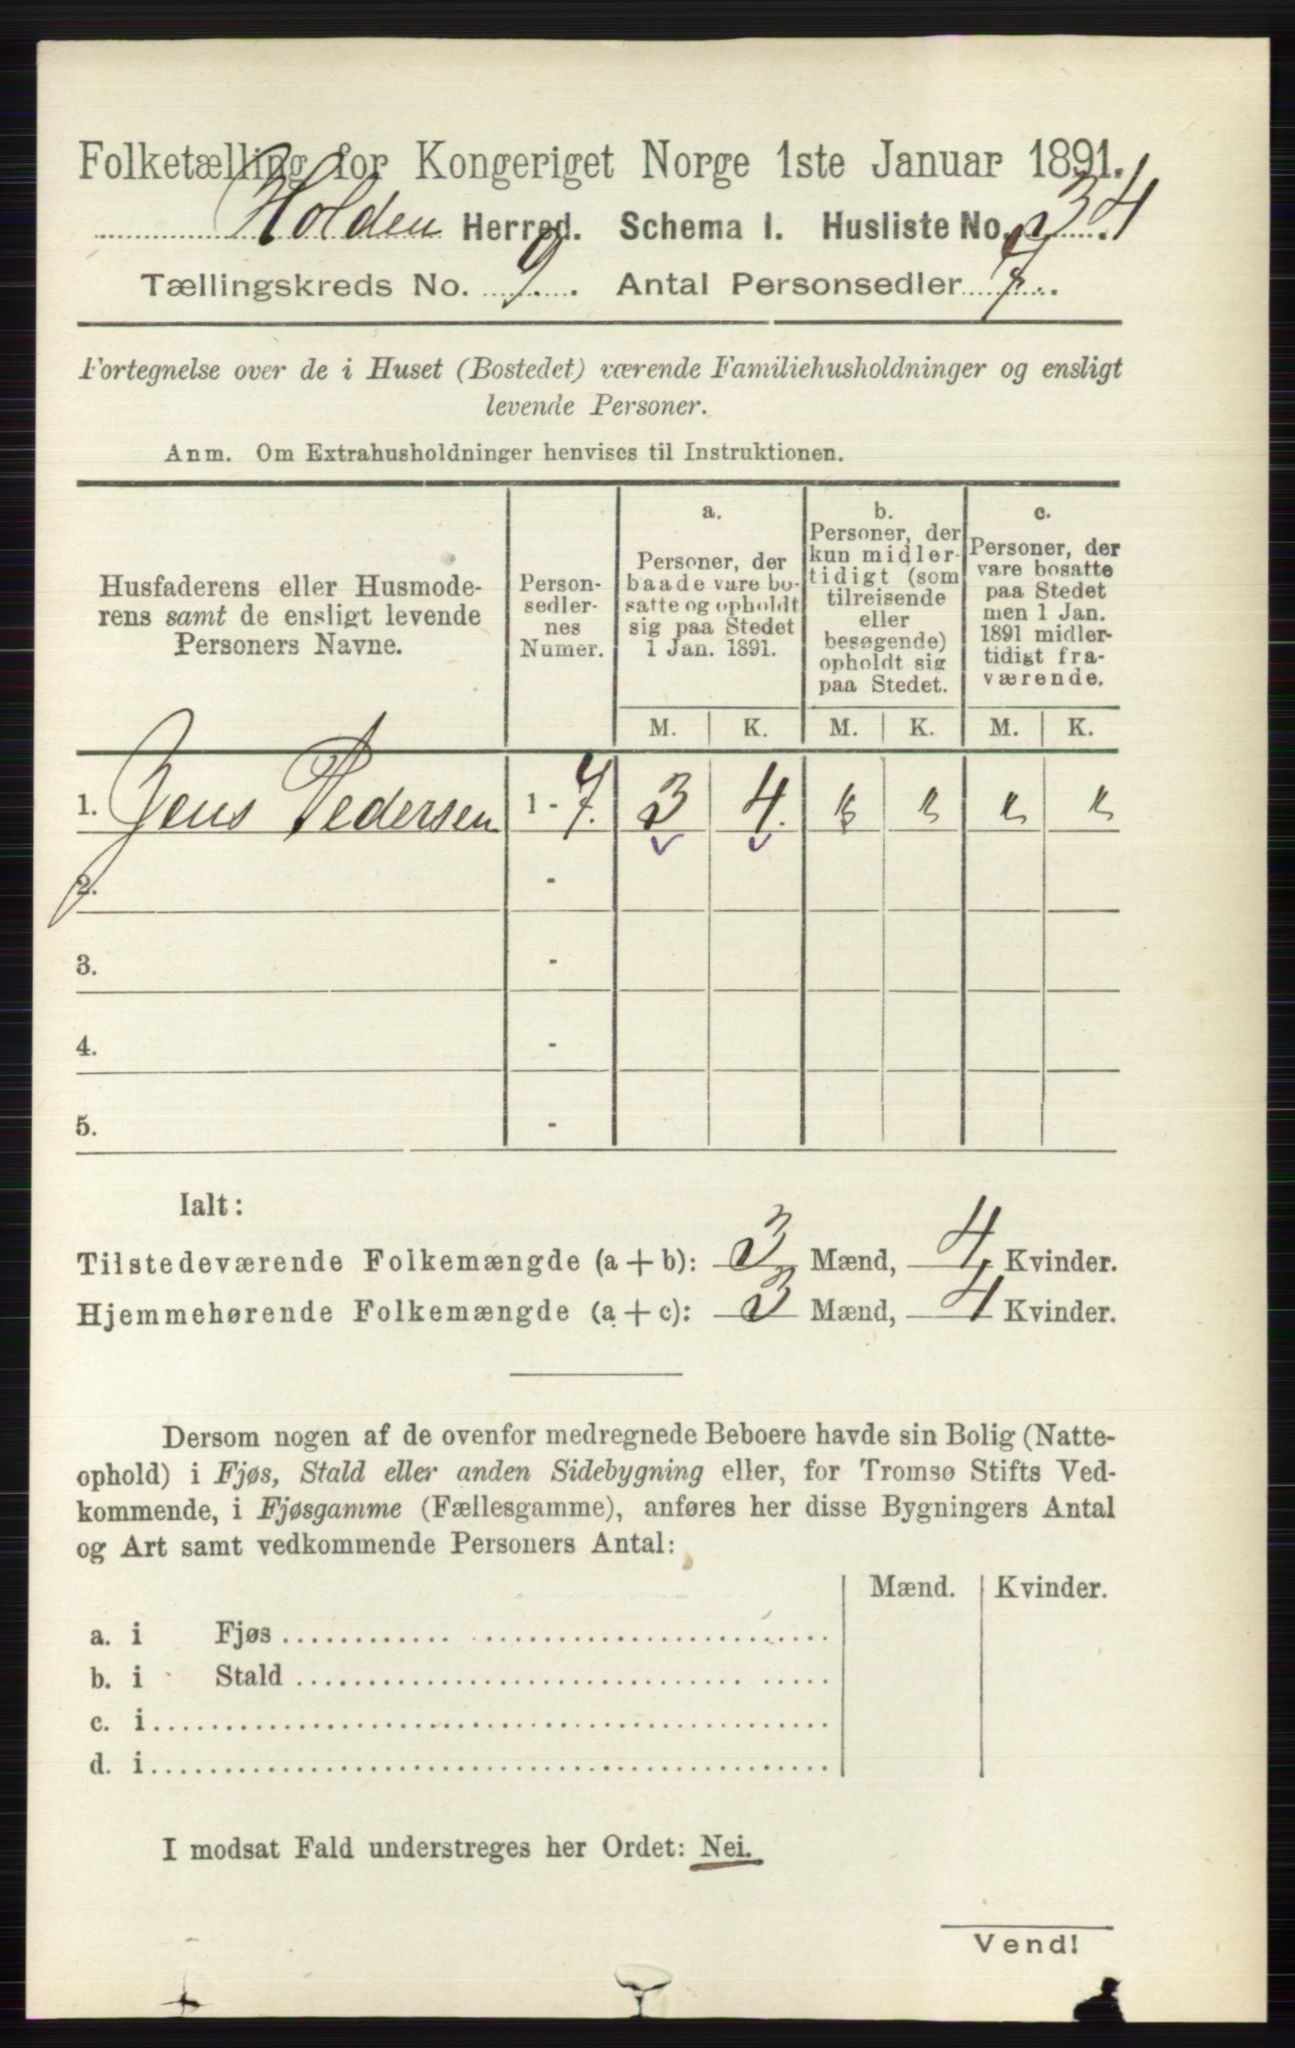 Folketælling for Kongeriget Norge 1ste Januar 1891.
Holden Herred. Schema I. Husliste No. 34
Tællingskreds No. 9. Antal Personsedler 7.
Fortegnelse over de i Huset (Bostedet) værende Familiehusholdninger og ensligt
levende Personer.
Anm. Om Extrahusholdninger henvises til Instruktionen.
Husfaderens eller Husmode-
rens samt de ensligt levende
Personers Navne.
Person-
sedler-
nes
Numer.
a.
Personer, der
baade vare bo-
satte og opholdt
sig paa Stedet
1 Jan. 1891.
b.
Personer, der
kun midler-
tidigt (som
tilreisende
eller
besøgende)
opholdt sig
paa Stedet.
c.
Personer, der
vare bosatte
paa Stedet
men 1 Jan.
1891 midler-
tidigt fra-
værende.
M. K. M. K. M. K.
1. Jens Pedersen 1 - 7. 3 4. " " " "
2. -
3. -
4. -
5. -
Ialt:
Tilstedeværende Folkemængde (a + b): 3 Mænd, 4 Kvinder.
Hjemmehørende Folkemængde (a + c): 3 Mænd, 4 Kvinder.
Dersom nogen af de ovenfor medregnede Beboere havde sin Bolig (Natte-
ophold) i Fjøs, Stald eller anden Sidebygning eller, for Tromsø Stifts Ved-
kommende, i Fjøsgamme (Fællesgamme), anføres her disse Bygningers Antal
og Art samt vedkommende Personers Antal:
Mænd. Kvinder.
a. i Fjøs
b. i Stald
c. i
d. i
I modsat Fald understreges her Ordet: Nei.
Vend!